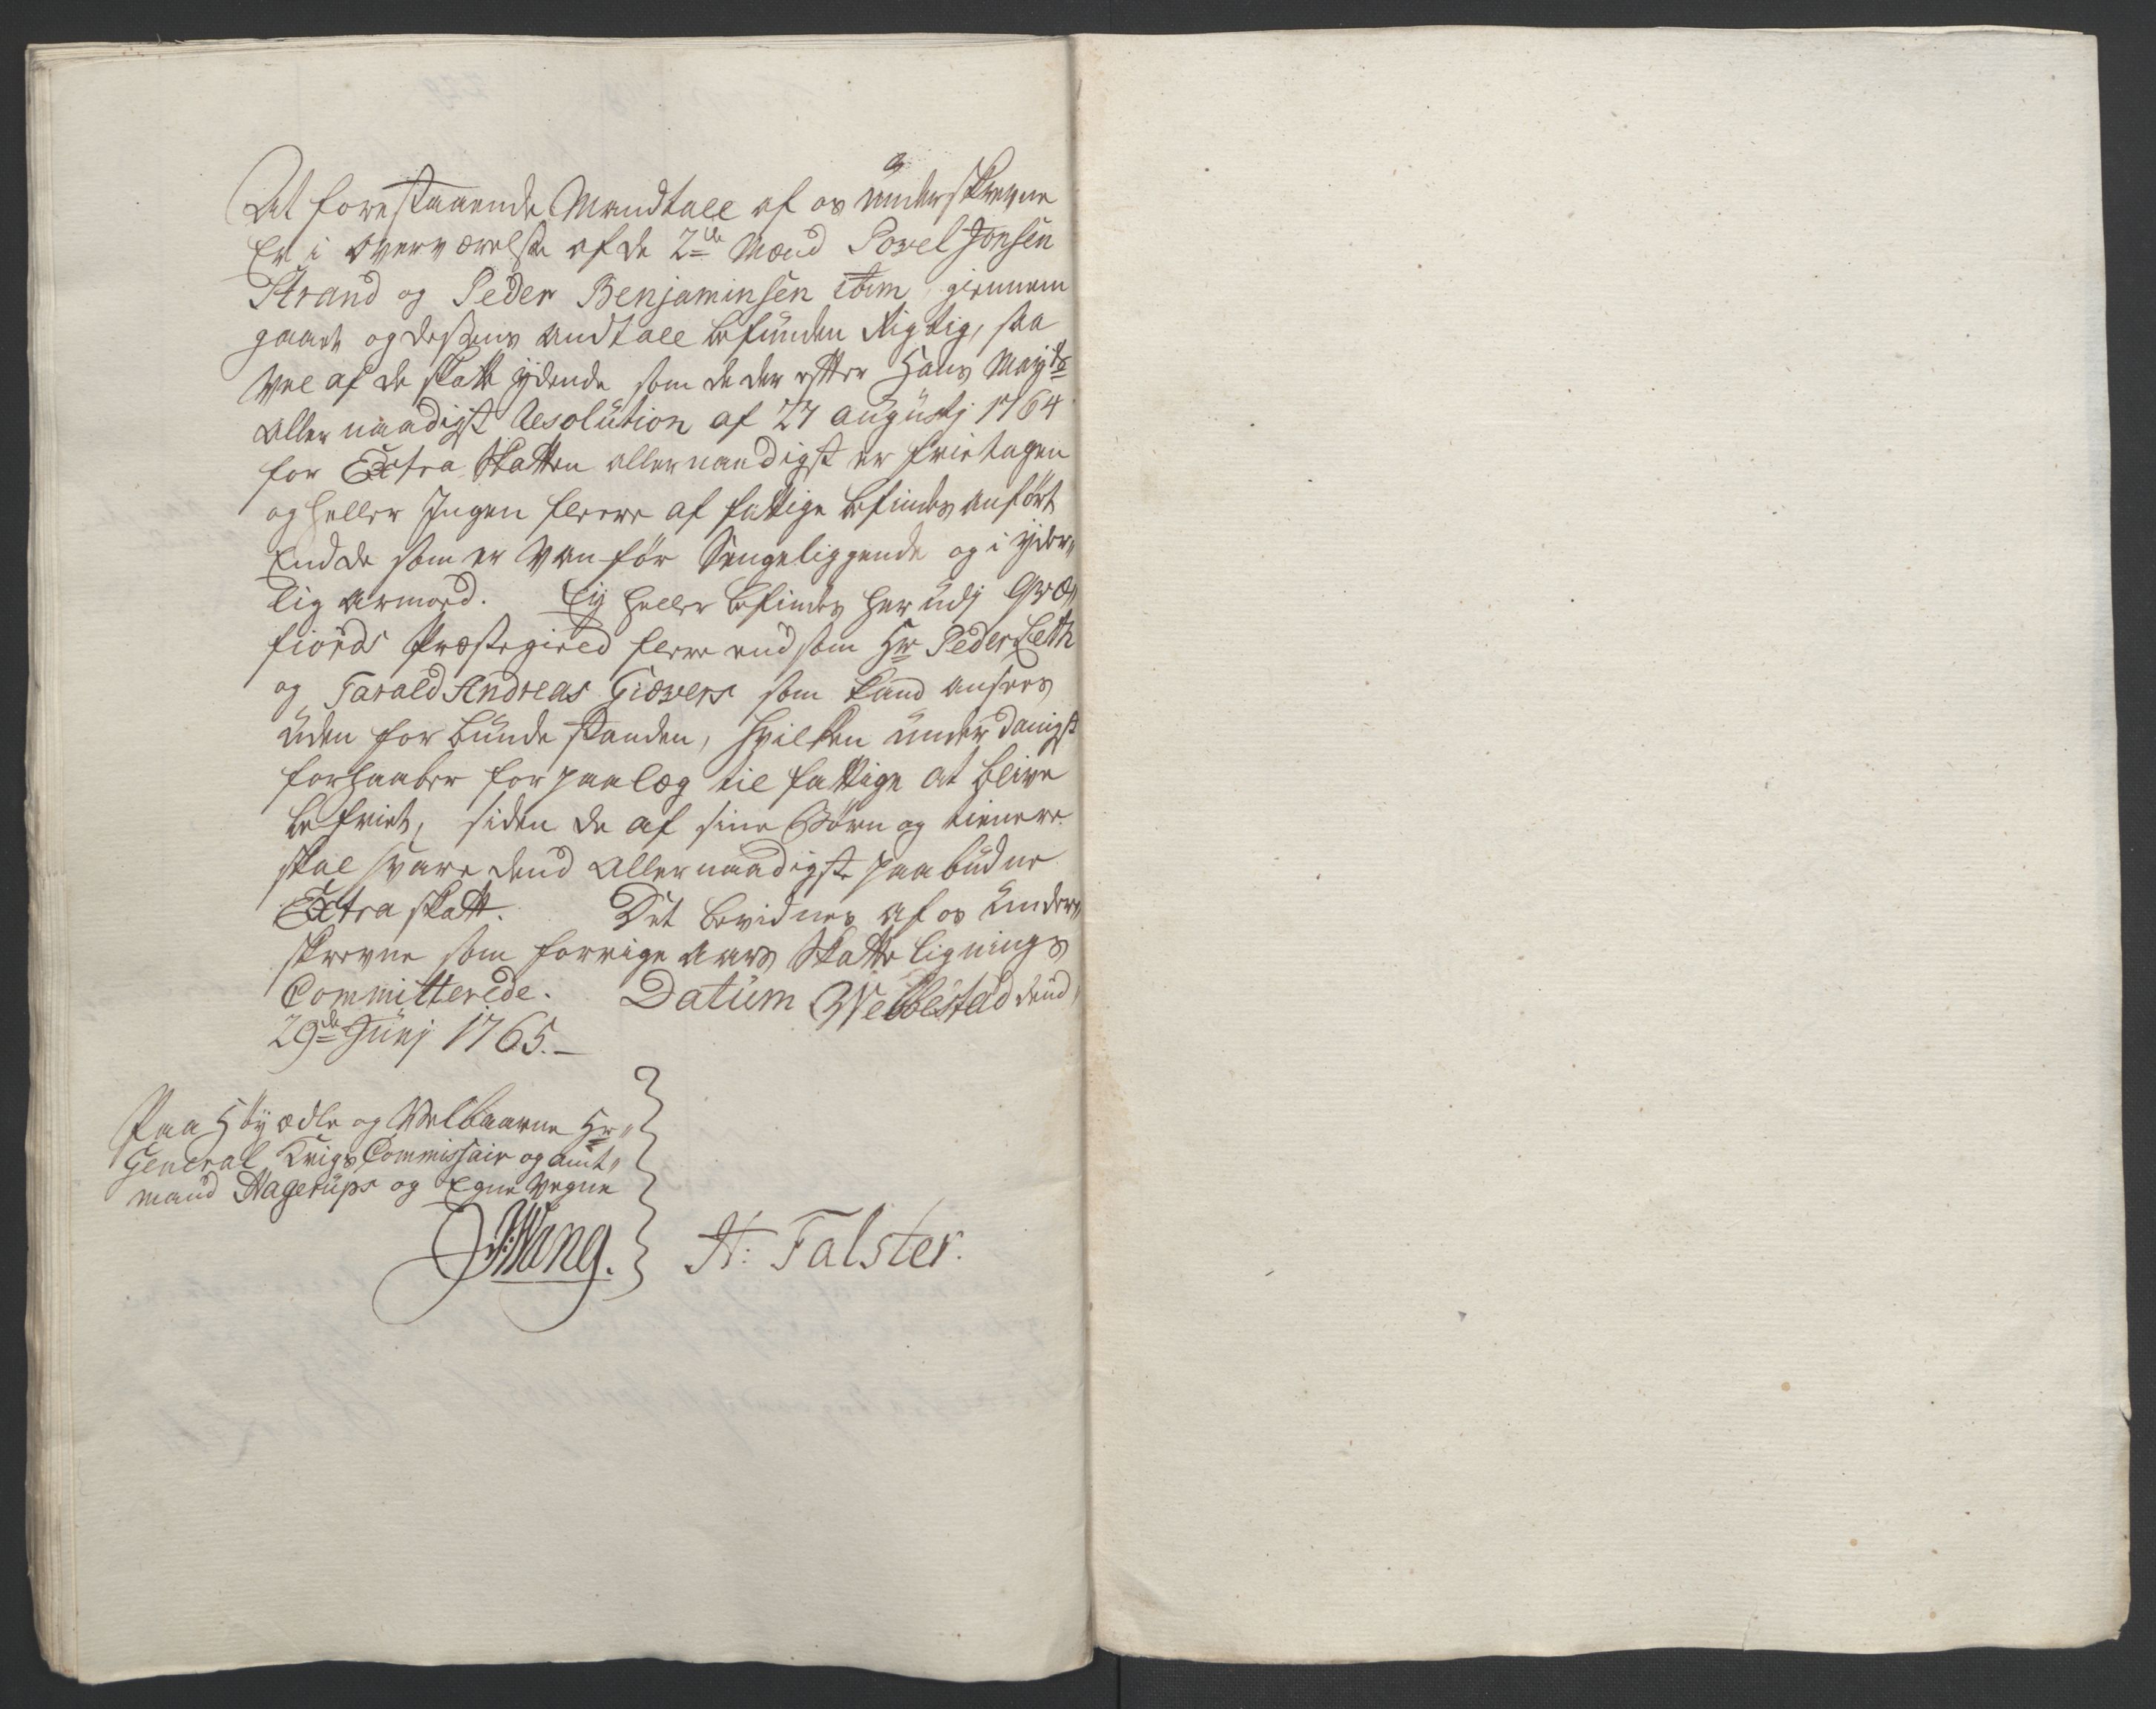 At forestaaende Mandtall af os underskrevne
Er i overværelse af de 2de Mænd Povel Jonsen
Strand og Peder Benjaminsen ibm, giennem
gaaet og dessens andtall befunden Rigtig, saa
vel af de skatt ydende som de der efter Hans Mayts
Allernaadigst Resolution af 27 augustj 1764
for Extra Skatten allernaadigst er fritagen
og heller Ingen fleere af fattige befindes anført
End de som er vanfør Sengeliggende og i yder„
lig armoed. Eij heller befindes her udj Qvæ„
fiords Præstegield flere end som Hr Peder Leth
og Tarald Andreas Giævers som kand ansees
uden for bunde standen, hvilken underdanigst
forhaaber for paalæg til fattige at blive
befriet, siden de af sine Børn og tienere
skal svare dend Allernaadigste paabudne
Extra skatt. Det bevidnes af os under„
skrevne som forrige aars Skatte lignings
Committerede. Datum Webbestad dend
29de Junj 1765.—
Paa Høyædle og Velbaarne Hr
General Krigs Commissair og amt„
mand Hagerups og Egne Vegne
Wang. H: Falster.